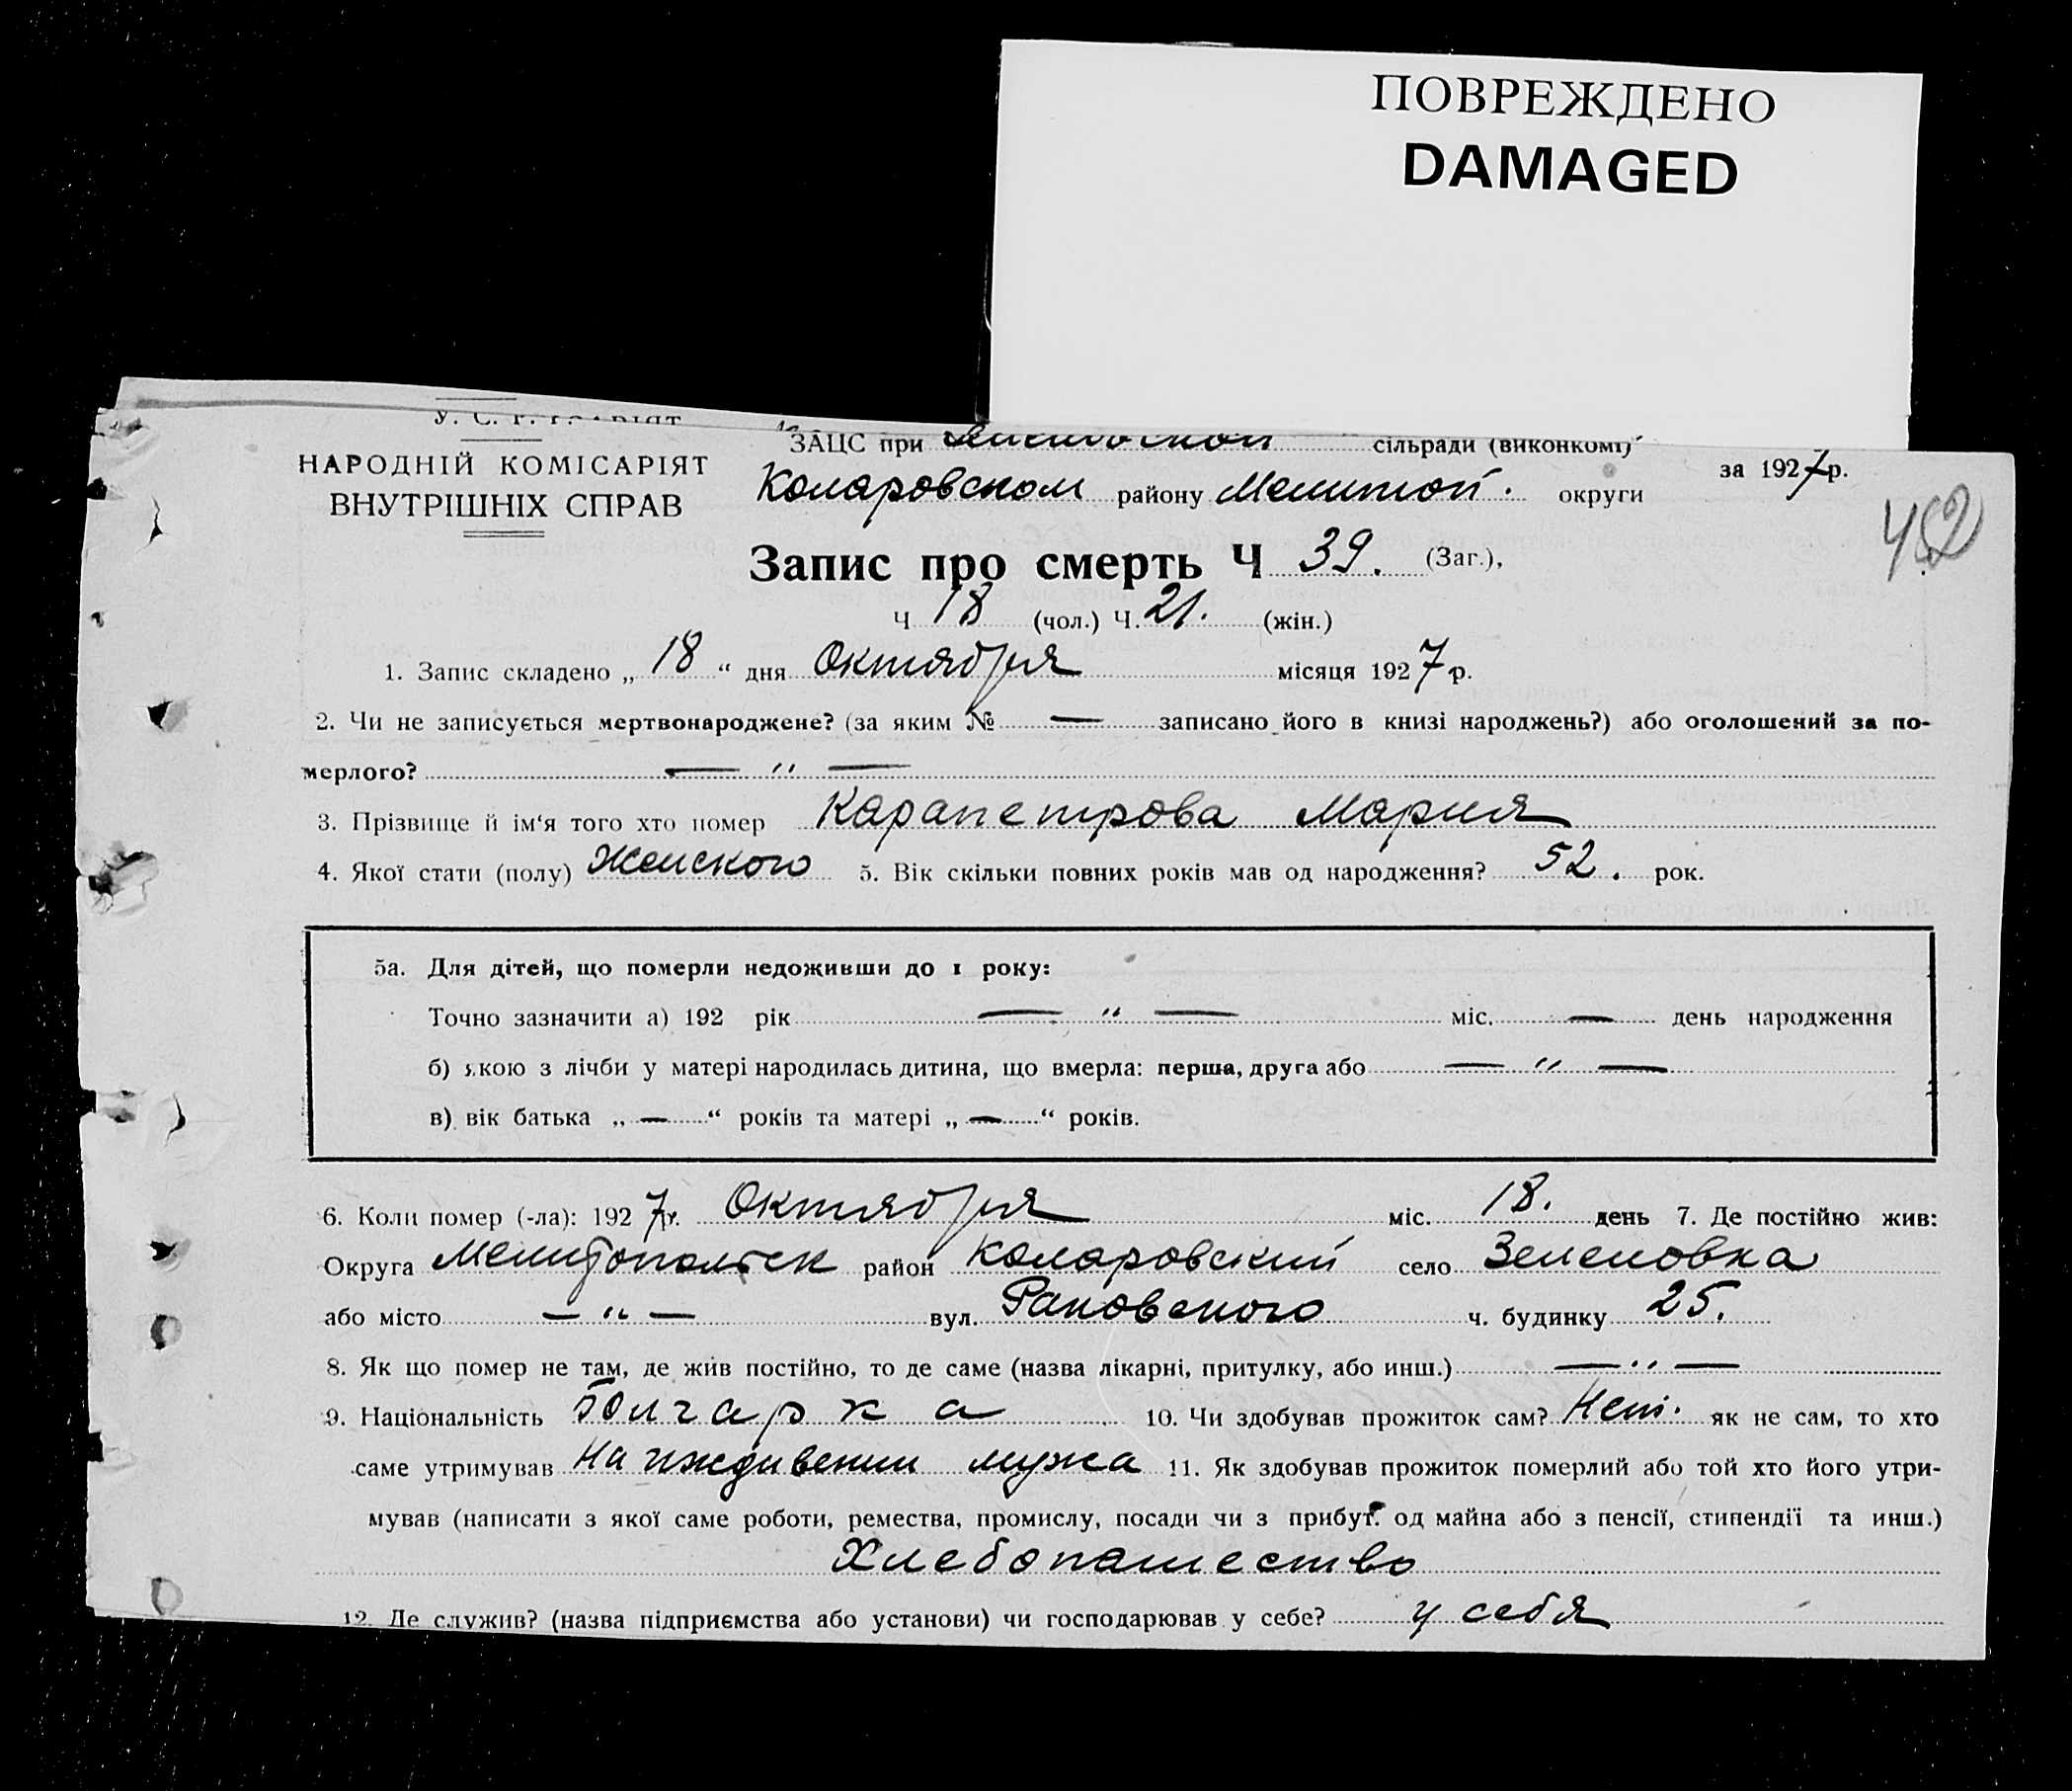 ПОВРЕЖДЕНО
DAMAGED
ЗАЦС при сільради (виконкомі)
НАРОДНІЙ КОМІСАРІЯТ
ВНУТРІШНІХ СПРАВ
Коларовском району Мелитоп. округи
за 1927 р.
42
Запис про смерть Ч 39. (Заг.),
Ч 18 (чол.) Ч. 21. (жін.)
1. Запис складено „ 18 “ дня Октября місяця 1927 р.
2. Чи не записується мертвонароджене? (за яким № — записано його в книзі народжень?) або оголошений за по-
мерлого? — " —
3. Прізвище й ім‘я того хто помер Карапетрова Мария
4. Якої стати (полу) Женского 5. Вік скільки повних років мав од народження? 52. рок.
5а. Для дітей, що померли недоживши до 1 року:
Точно зазначити а) 192 рік — " — міс. — день народження
б) якою з лічби у матері народилась дитина, що вмерла: перша, друга або — " —
в) вік батька „ — “ років та матері „ — “ років.
6. Коли помер (-ла): 1927 р. Октября міс. 18. день 7. Де постійно жив:
Округа Мелитопольск район Коларовский село Зеленовка
або місто — " — вул. Раковского ч. будинку 25.
8. Як що помер не там, де жив постійно, то де саме (назва лікарні, притулку, або инш.) — " —
9. Національність Болгарка 10. Чи здобував прожиток сам? Нет. як не сам, то хто
саме утримував На иждивении мужа 11. Як здобував прожиток померлий або той хто його утри-
мував (написати з якої саме роботи, ремества, промислу, посади чи з прибут. од майна або з пенсії, стипендії та инш.)
Хлебопашество
12. Де служив? (назва підприємства або установи) чи господарював у себе? у себя